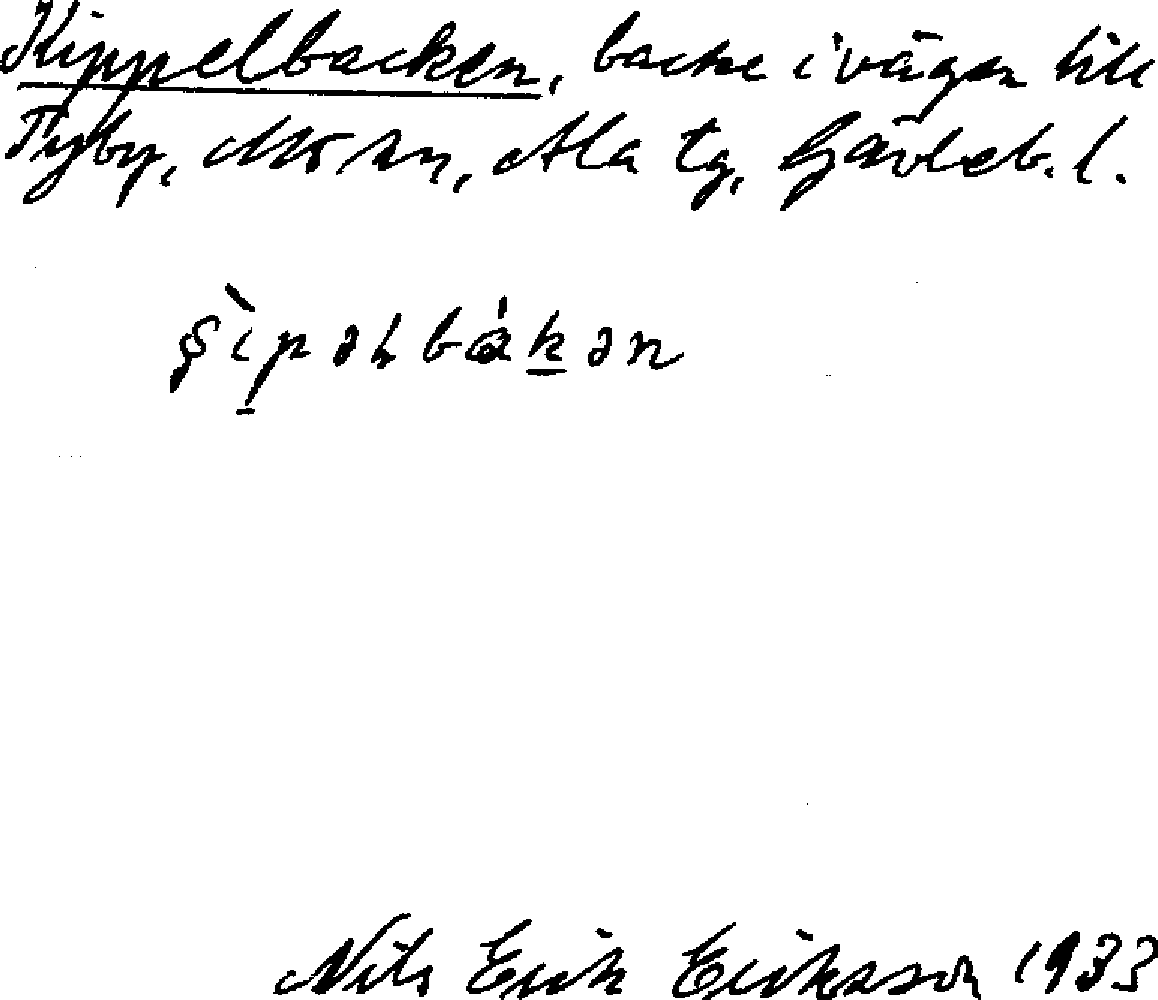 Kippelbacken, backe i vägen till
Tyby, Mo sn, Ala tg, Gävleb. l.
Nils Erik Eriksson 1933